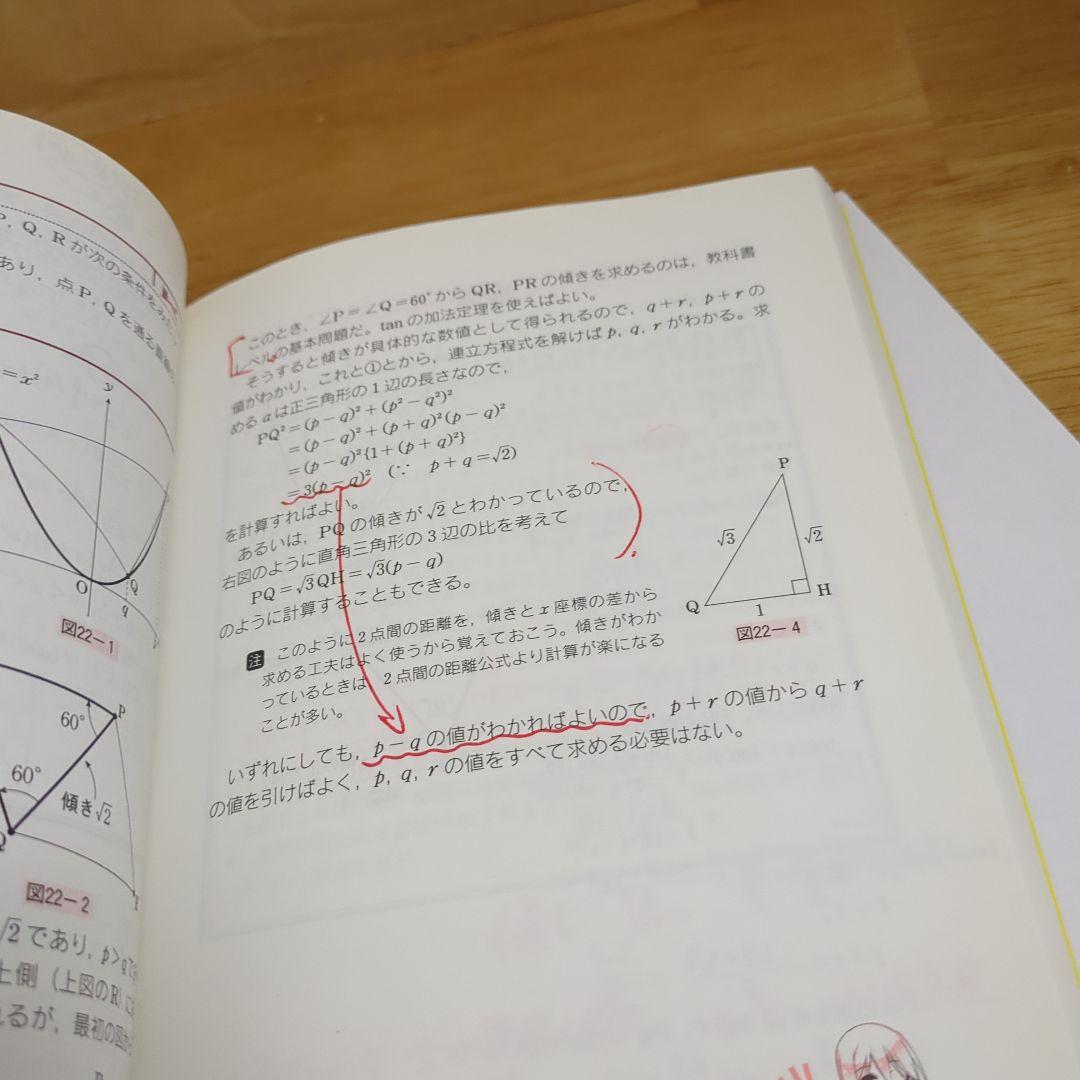 P, Q, Rが次の条件を
あり，点P, Qを通る直線の
=x²
y
O
Q
q
図22－1
60°
P
60°
傾き√2
Q
図22－2
√2であり，p>q
上側（上図のR）に
るが，最初の図
このとき，∠P＝∠Q＝60°からQR，PRの傾きを求めるのは，教科書
レベルの基本問題だ。tanの加法定理を使えばよい。
そうすると傾きが具体的な数値として得られるので，q＋r，p＋rの
値がわかり，これと①とから，連立方程式を解けばp, q, rがわかる。求
めるaは正三角形の1辺の長さなので，
PQ²＝(p－q)²＋(p²－q²)²
＝(p－q)²＋(p＋q)²(p－q)²
＝(p－q)²{1＋(p＋q)²}
＝3(p－q)² (∵ p＋q＝√2)
を計算すればよい。
あるいは，PQの傾きが√2とわかっているので，
右図のように直角三角形の3辺の比を考えて
PQ＝√3QH＝√3(p－q)
のように計算することもできる。
P
√3
√2
Q
1
H
図22－4
注 このように2点間の距離を，傾きとx座標の差から
求める工夫はよく使うから覚えておこう。傾きがわか
っているときは，2点間の距離公式より計算が楽になる
ことが多い。
いずれにしても，p－qの値がわかればよいので，p＋rの値からq＋r
の値を引けばよく，p, q, rの値をすべて求める必要はない。